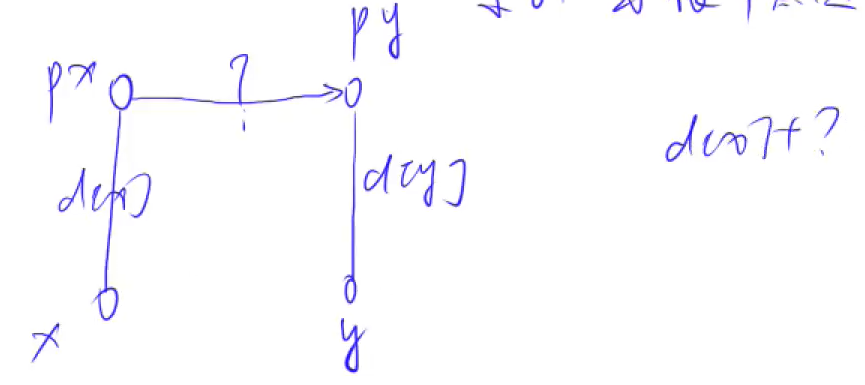 py
px
?
d[x]
d[y]
d[x]+?
x
y